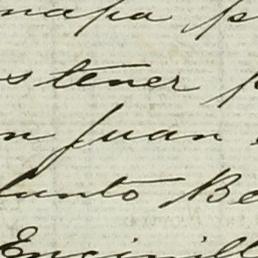 mapa p
s tener p
n Juan
unto Be
Encinill